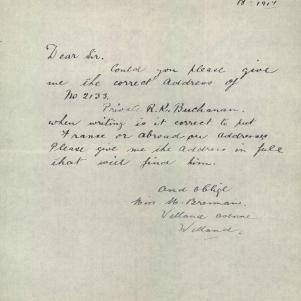 18 - 1917
Dear Sir.
Could you please give
me the correct Address of
No 2133.
Private R. K. Buchanan.
when writing is it correct to put
France or abroad on addresses
Please give me the Address in full
that will find him.
And oblige
Miss M. Brennan.
Welland Avenue
Welland.